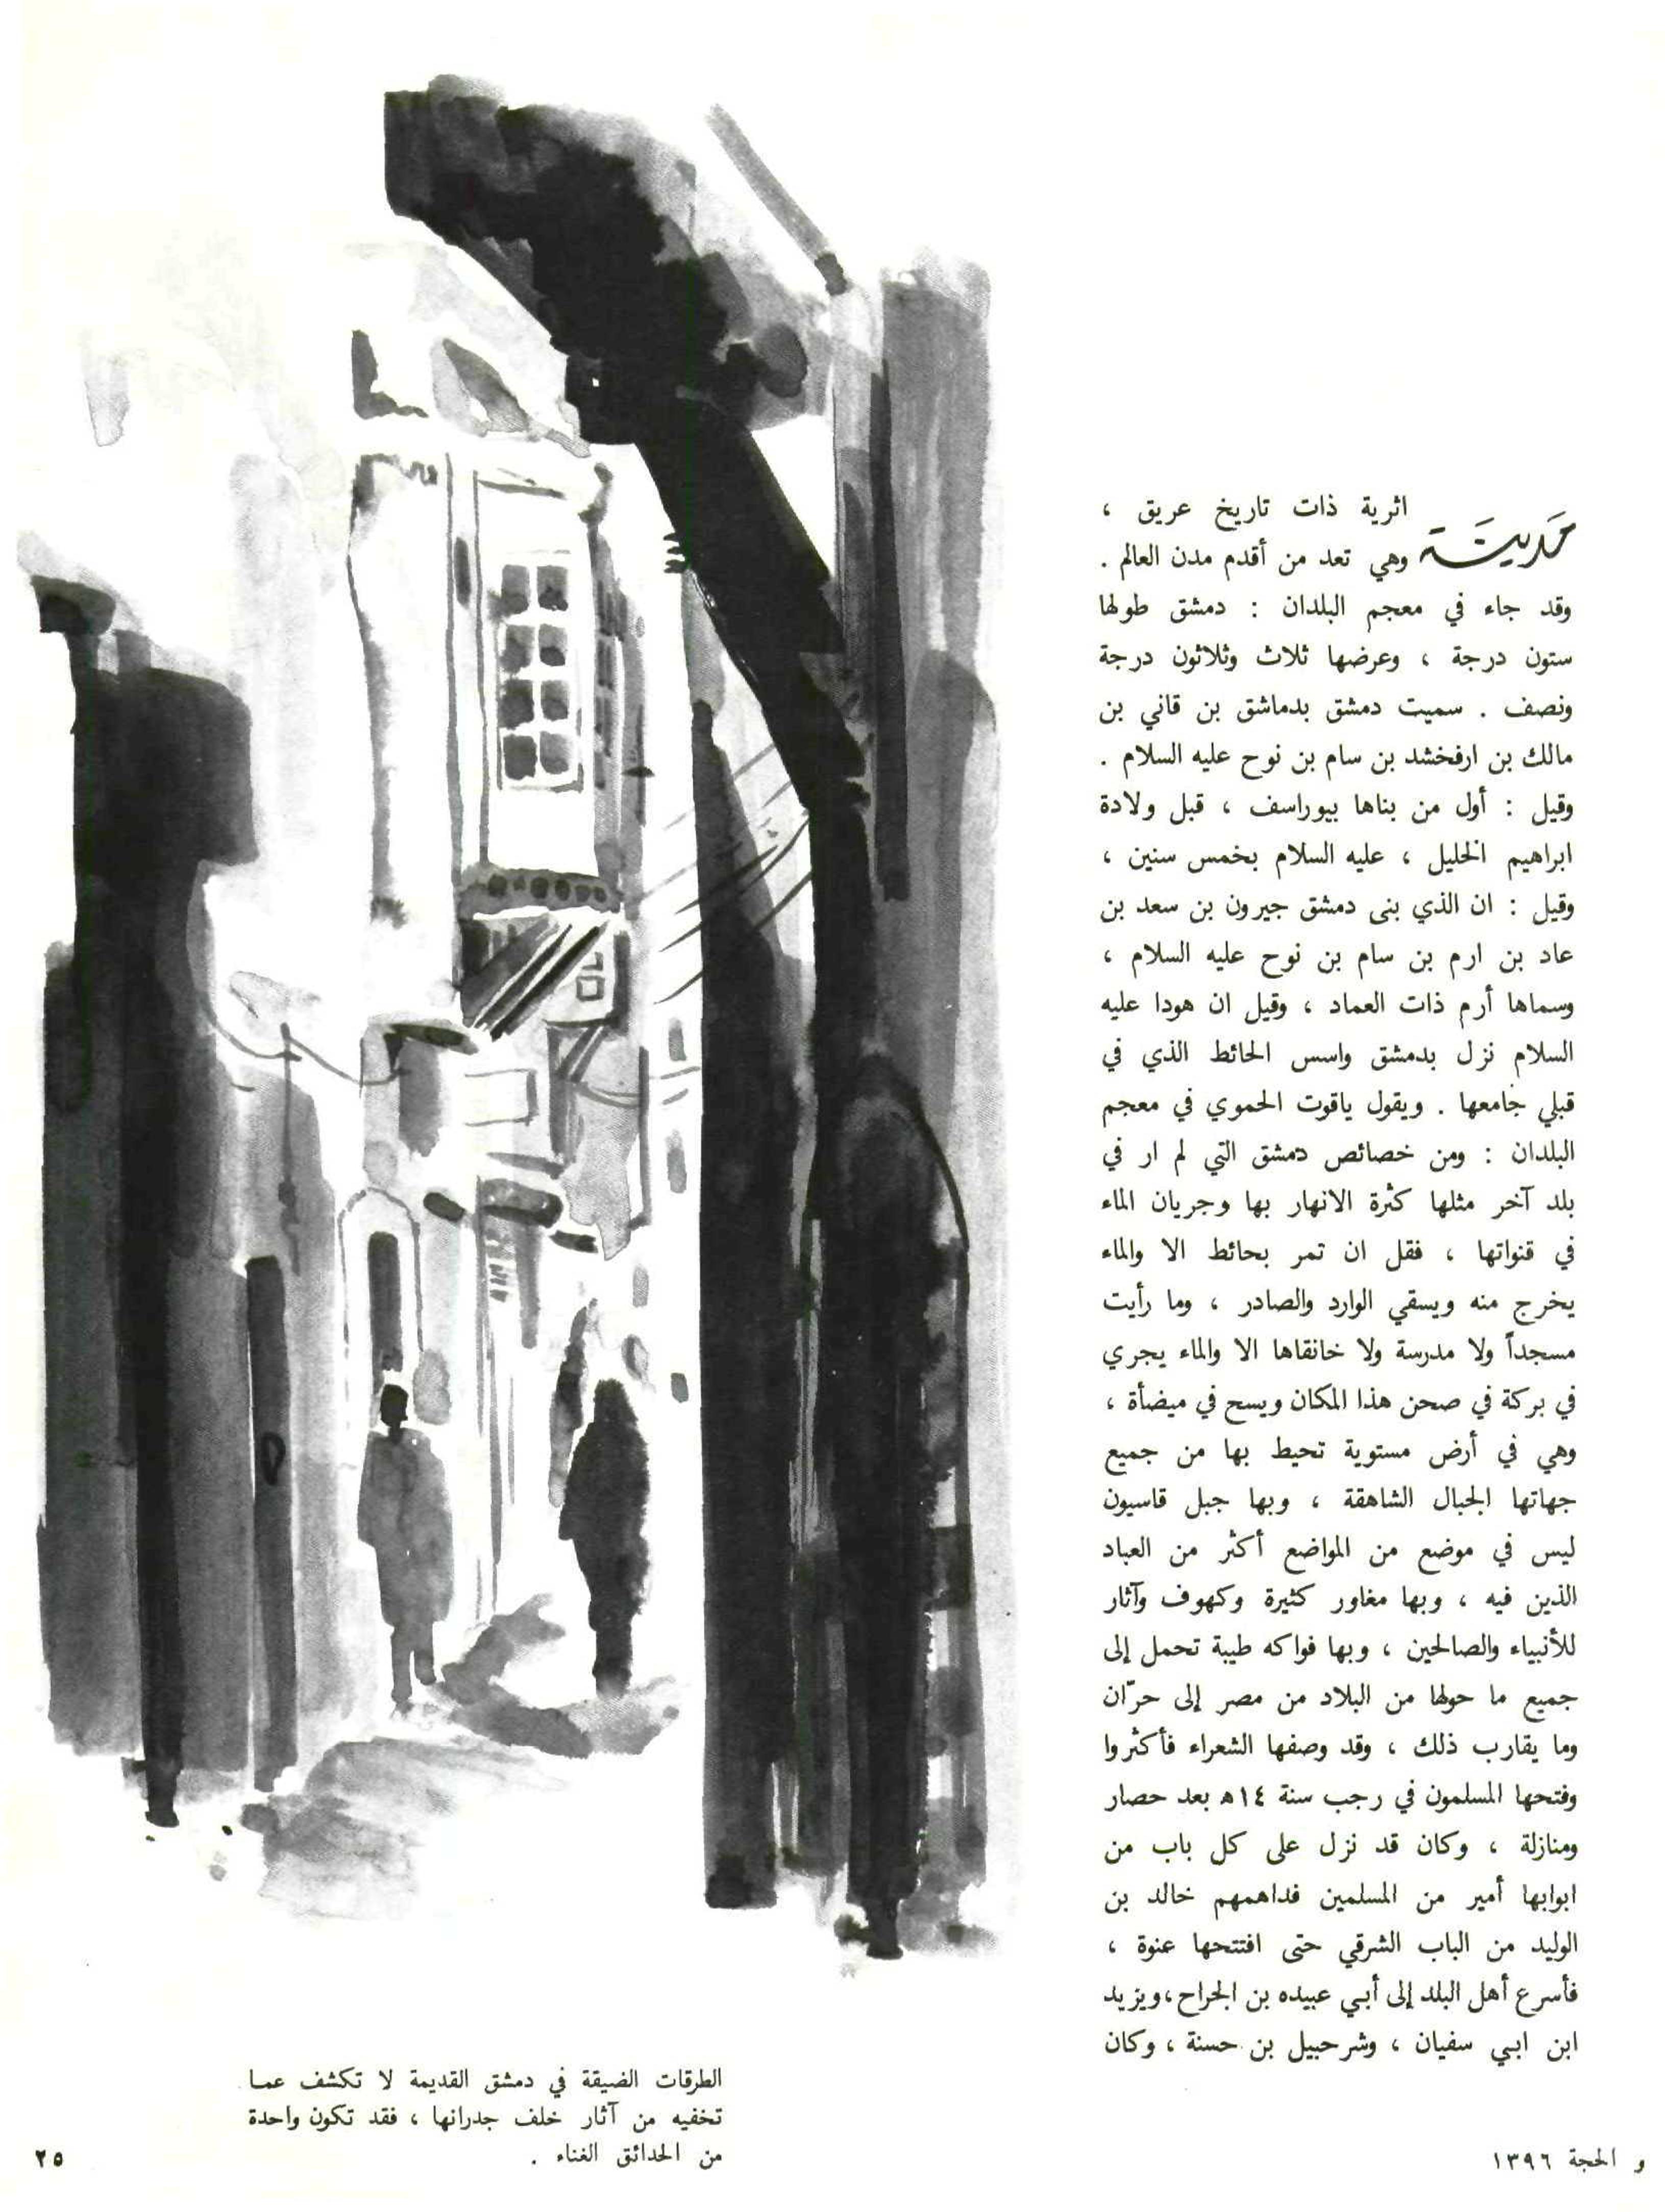 مَدينَة اثرية ذات تاريخ عريق ،
وهي تعد من أقدم مدن العالم .
وقد جاء في معجم البلدان : دمشق طولها
ستون درجة ، وعرضها ثلاث وثلاثون درجة
ونصف . سميت دمشق بدماشق بن قاني بن
مالك بن ارفخشد بن سام بن نوح عليه السلام .
وقيل : أول من بناها بيوراسف ، قبل ولادة
ابراهيم الخليل ، عليه السلام بخمس سنين ،
وقيل : ان الذي بنى دمشق جيرون بن سعد بن
عاد بن ارم بن سام بن نوح عليه السلام ،
وسماها أرم ذات العماد ، وقيل ان هودا عليه
السلام نزل بدمشق واسس الحائط الذي في
قبلي جامعها . ويقول ياقوت الحموي في معجم
البلدان : ومن خصائص دمشق التي لم ار في
بلد آخر مثلها كثرة الانهار بها وجريان الماء
في قنواتها ، فقل ان تمر بحائط الا والماء
يخرج منه ويسقي الوارد والصادر ، وما رأيت
مسجداً ولا مدرسة ولا خانقاها الا والماء يجري
في بركة في صحن هذا المكان ويسح في ميضأة ،
وهي في أرض مستوية تحيط بها من جميع
جهاتها الجبال الشاهقة ، وبها جبل قاسيون
ليس في موضع من المواضع أكثر من العباد
الذين فيه ، وبها مغاور كثيرة وكهوف وآثار
للأنبياء والصالحين ، وبها فواكه طيبة تحمل إلى
جميع ما حولها من البلاد من مصر إلى حرّان
وما يقارب ذلك ، وقد وصفها الشعراء فأكثروا
وفتحها المسلمون في رجب سنة ١٤ه‍ بعد حصار
ومنازلة ، وكان قد نزل على كل باب من
ابوابها أمير من المسلمين فداهمهم خالد بن
الوليد من الباب الشرقي حتى افتتحها عنوة ،
فأسرع أهل البلد إلى أبي عبيده بن الجراح،ويزيد
ابن ابي سفيان ، وشرحبيل بن حسنة ، وكان
الطرقات الضيقة في دمشق القديمة لا تكشف عما
تخفيه من آثار خلف جدرانها ، فقد تكون واحدة
من الحدائق الغناء .
و الحجة ١٣٩٦
٢٥